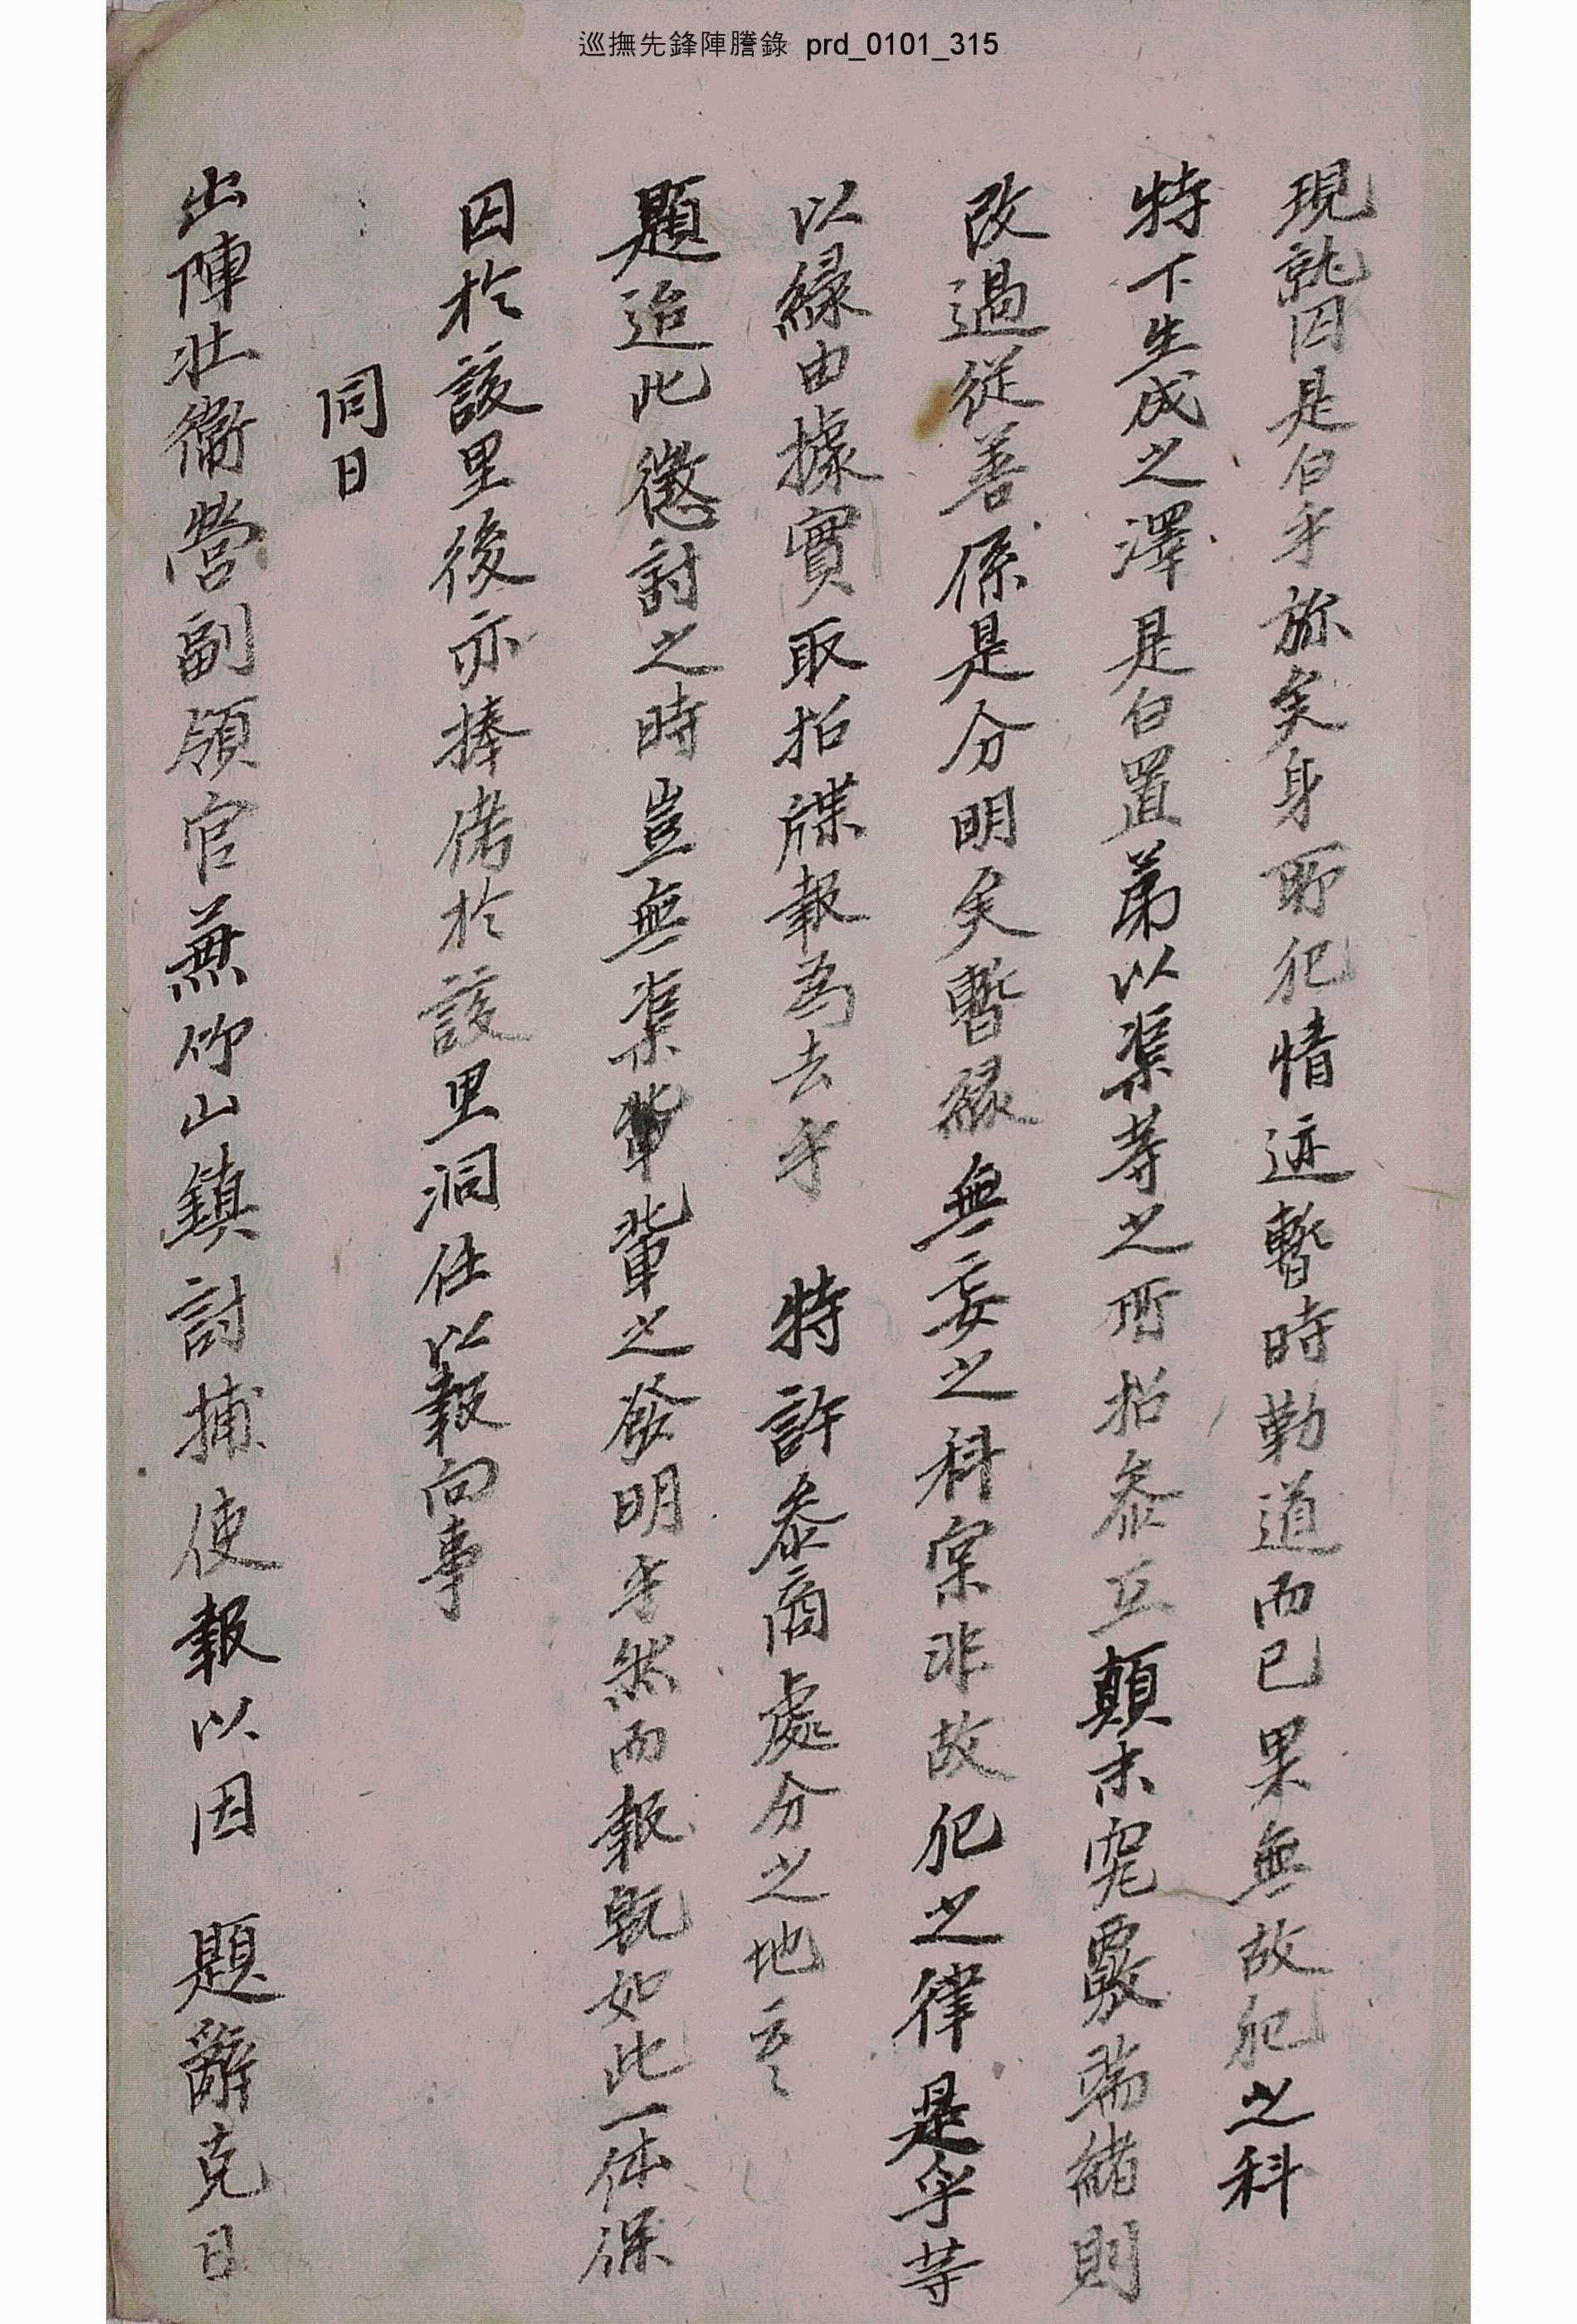 巡撫先鋒陣謄錄 prd_0101_315
現就囚是白乎旀矣身所犯情迹暫時勒道而已果無故犯之科
特下生成之澤是白置弟以渠等之所招叅互顚末究覈端緖則
改過從善係是分明矣暫緣無妄之科案非故犯之律是乎等
以緣由據實取招牒報爲去乎 特許叅商處分之地云〻
題迨此懲討之時豈無渠輩輩之發明乎然而報旣如此一体保
囚於該里後亦捧侤於該里洞任以報向事
同日
出陣壯衛營副領官兼竹山鎭討捕使報以因 題辭克日